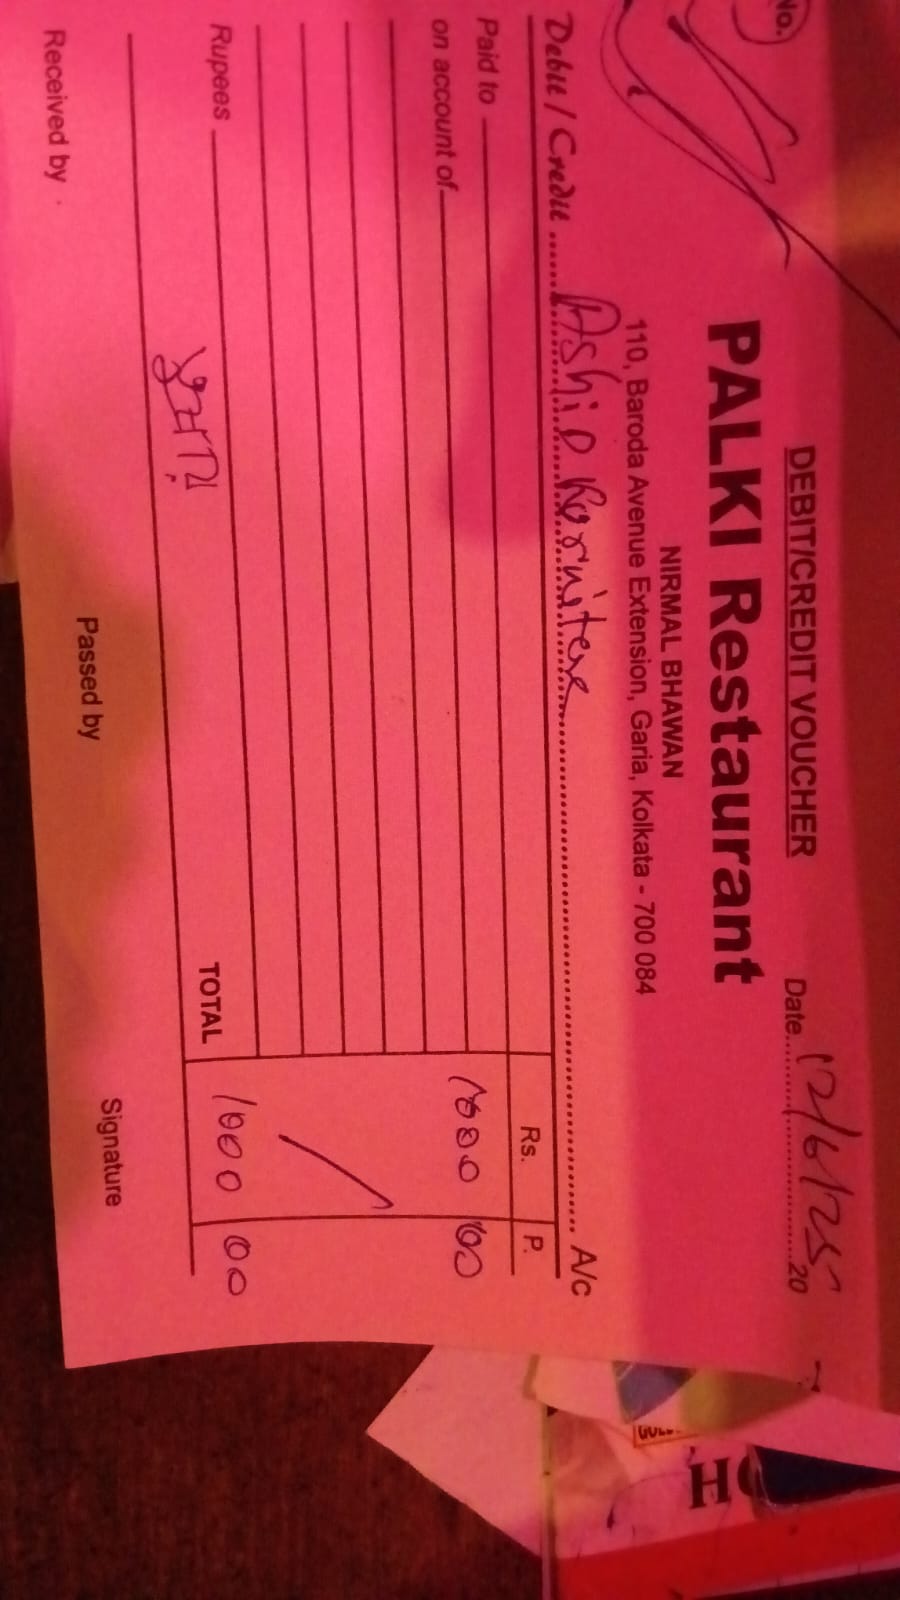 No.
DEBIT/CREDIT VOUCHER
Date 12/6/25 20
PALKI Restaurant
NIRMAL BHAWAN
110, Baroda Avenue Extension, Garia, Kolkata - 700 084
Debit / Credit Ashid A/c
Paid to Rs. P.
on account of 1000 00
Rupees TOTAL 1000 00
Received by Passed by Signature
H